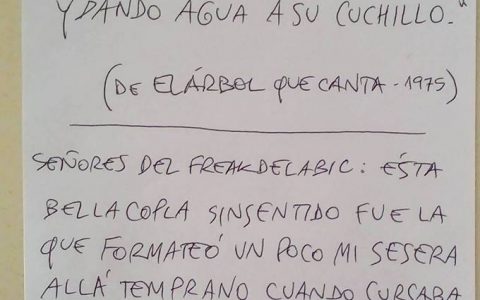 Y DANDO AGUA A SU CUCHILLO."
(DE EL ÁRBOL QUE CANTA - 1975)
SEÑORES DEL FREAKDELABIC: ÉSTA
BELLA COPLA SINSENTIDO FUE LA
QUE FORMATEÓ UN POCO MI SESERA
ALLÁ TEMPRANO CUANDO CURSABA